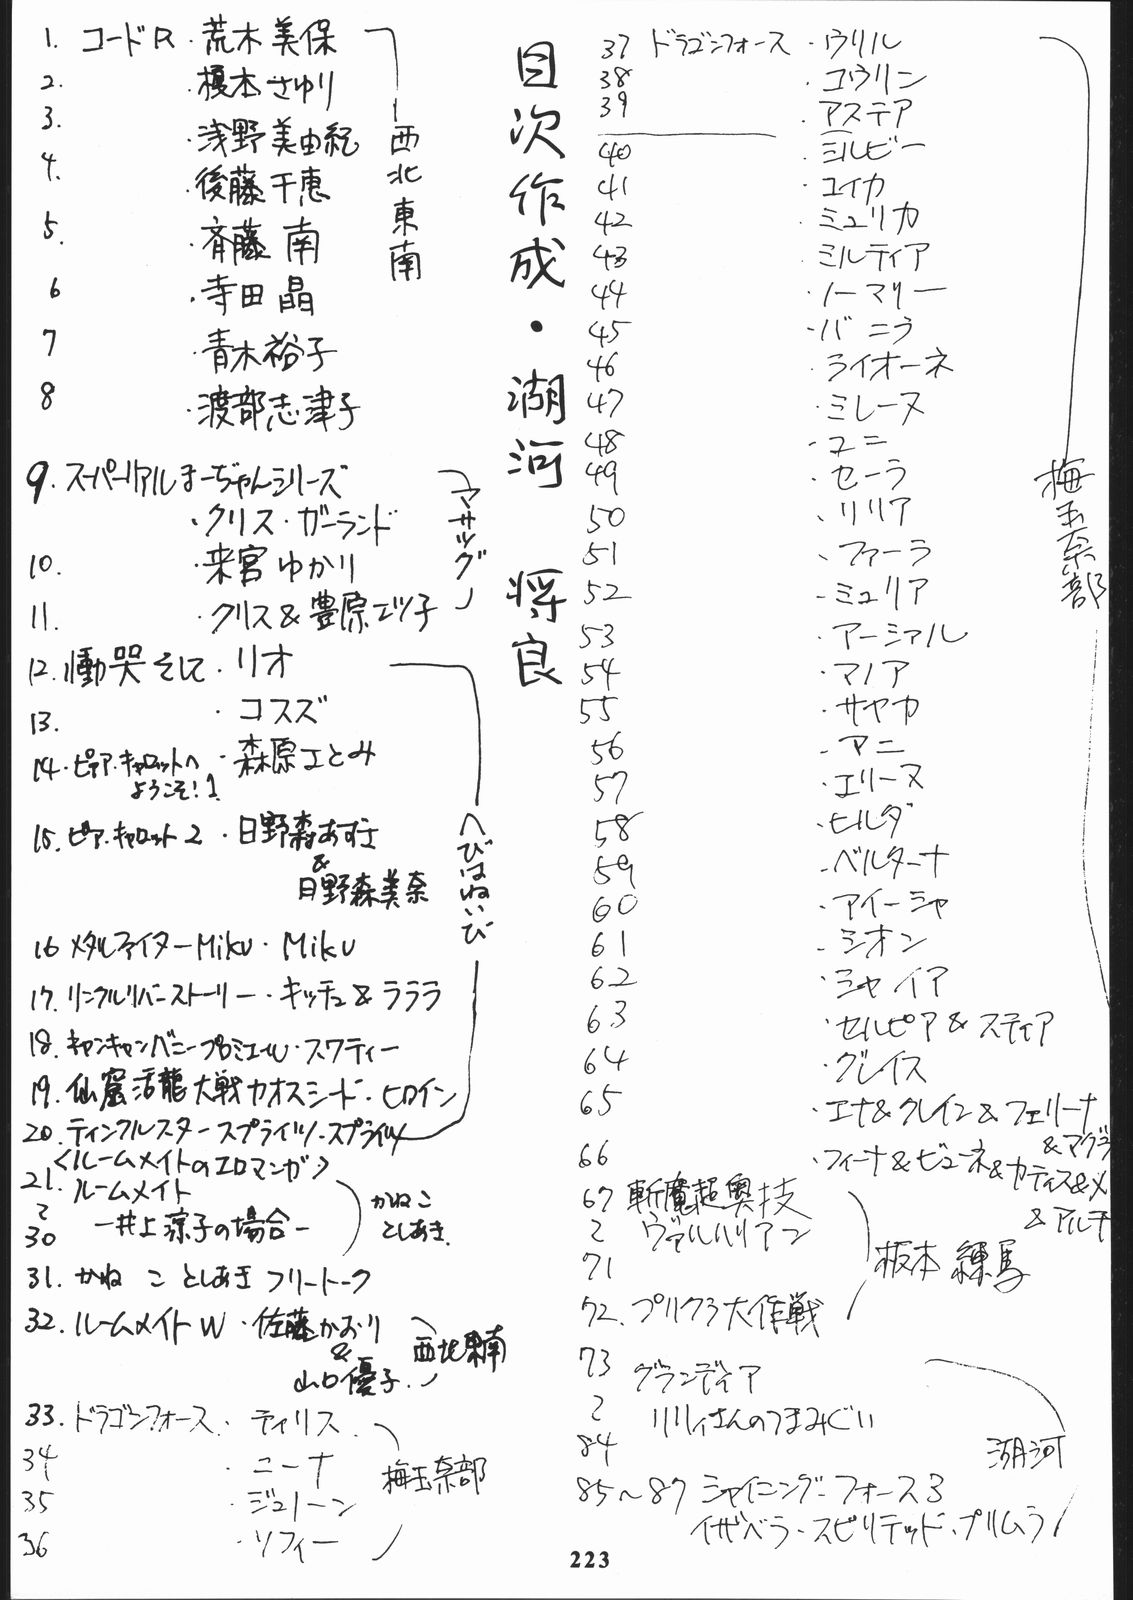 1. コードR・荒木美保
2. 榎本さゆり
3. ・浅野美由紀
4. ・後藤千恵
5. ・斉藤南
6 ・寺田晶
7 ・青木裕子
8 ・渡部志津子
西北東南
9. スーパーリアルまーぢゃんシリーズ
・クリス・ガーランド
10. ・来宮ゆかり
11. ・クリス&豊原エツ子
マサツグ
12. 慟哭そして・リオ
13. ・コスズ
14・ピア・キャロットへようこそ!1・森原さとみ
15. ピア・キャロット2・日野森あずさ
&
日野森美奈
16 メタルファイターMiku・Miku
17. リンクルリバーストーリー・キッチュ&ラララ
18. キャンキャンバニープルミエール・スワティー
19. 仙窟活龍大戦カオスシード・ヒロイン
20. ティンクルスタースプライツ・スプライツ
へびはねいび
<ルームメイトのエロマンガ>
21. ルームメイト
〜
30 ー井上涼子の場合ー
かねこ
としあき
31. かねことしあきフリートーク
32. ルームメイトW・佐藤かおり
&
山口優子
西北東南
33. ドラゴンフォース・ティリス
34 ・ニーナ
35 ・ジュリーン
36 ・ソフィー
梅玉奈部
目次作成・湖河将良
37 ドラゴンフォース・ウリル
38 ・コウリン
39 ・アステア
40 ・シルビー
41 ・ユイカ
42 ・ミュリカ
43 ・ミルティア
44 ・ノーマリー
45 ・バニラ
46 ・ライオーネ
47 ・ミレーヌ
48 ・ユニ
49 ・セーラ
50 ・リリア
51 ・ファーラ
52 ・ミュリア
53 ・アーシァル
54 ・マノア
55 ・サヤカ
56 ・アニ
57 ・エリーヌ
58 ・ヒルダ
59 ・ベルターナ
60 ・アイーシャ
61 ・シオン
62 ・シャイア
63 ・セルピア&スティア
64 ・グレイス
65 ・エナ&クレイン&フェリーナ
&マグラ
66 ・フィーナ&ビューネ&カーティス&メ
&アルチ
梅玉奈部
67 斬魔超奥技
〜 ヴァルハリアン
71
72. プリクラ大作戦
板本練馬
73 グランディア
〜 リリィさんのつまみぐい
84
85〜87 シャイニング・フォース3
イザベラ・スピリテッド・プリムラ
湖河
223